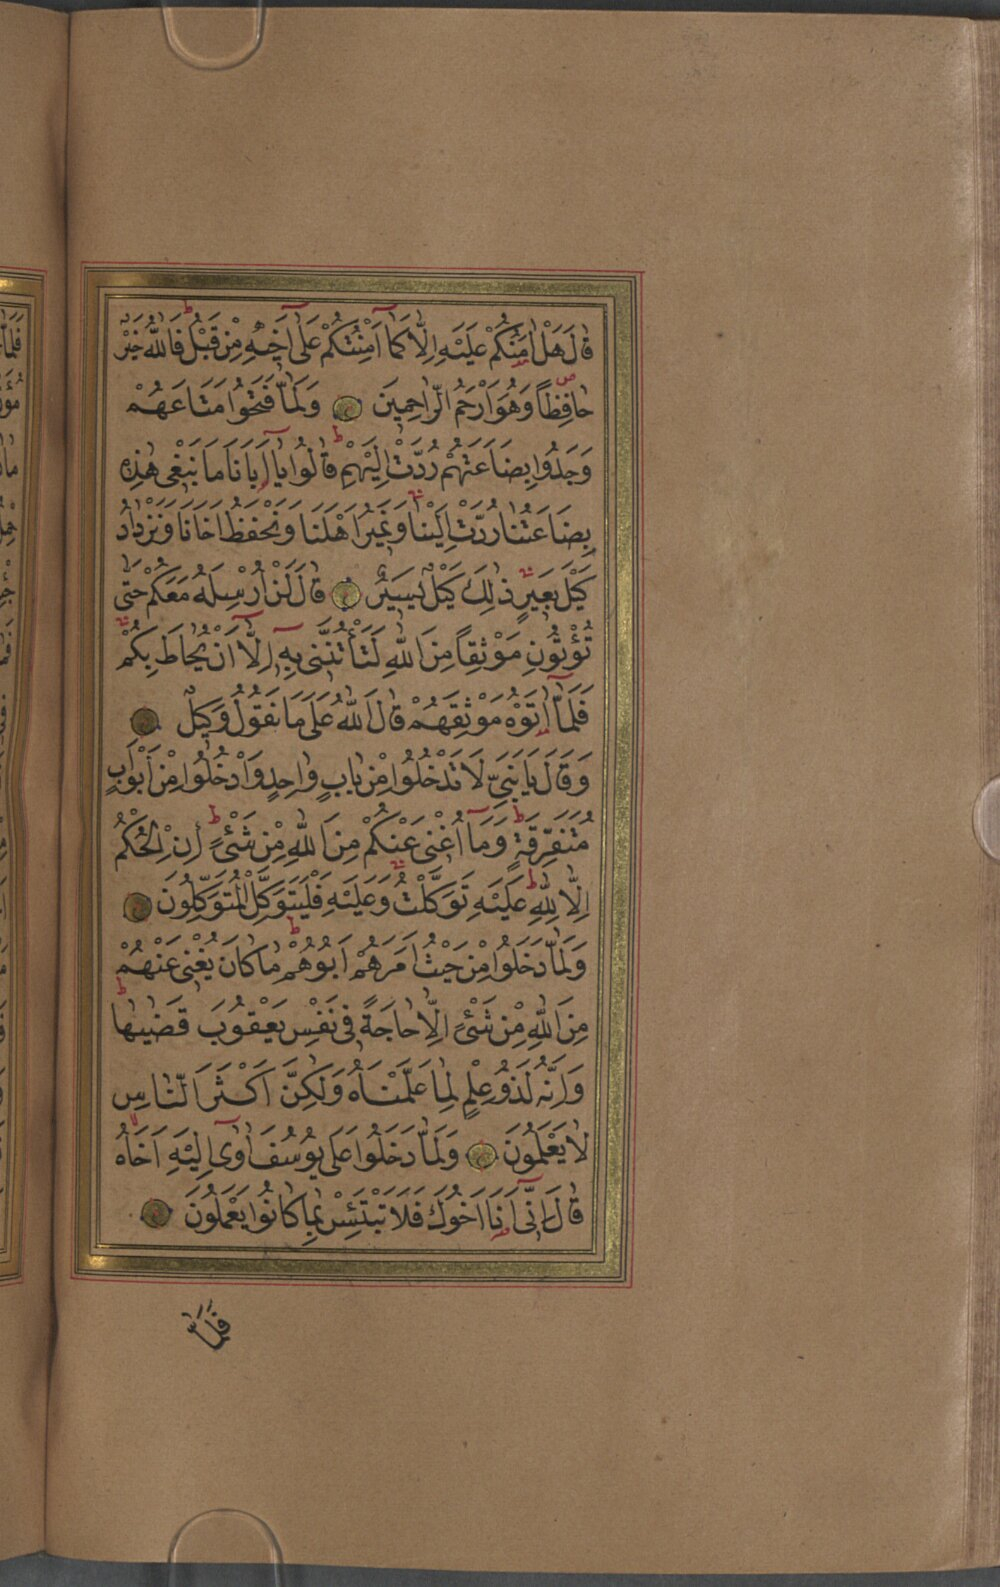 قَالَ هَلْ اٰمَنُكُمْ عَلَيْهِ اِلَّا كَمَٓا اَمِنْتُكُمْ عَلٰٓى اَخٖيهِ مِنْ قَبْلُ فَاللّٰهُ خَيْرٌ
حَافِظًا وَهُوَ اَرْحَمُ الرَّاحِمٖينَ وَلَمَّا فَتَحُوا مَتَاعَهُمْ
وَجَدُوا بِضَاعَتَهُمْ رُدَّتْ اِلَيْهِمْ قَالُوا يَٓا اَبَانَا مَا نَبْغٖى هٰذِهٖ
بِضَاعَتُنَا رُدَّتْ اِلَيْنَا وَنَمٖيرُ اَهْلَنَا وَنَحْفَظُ اَخَانَا وَنَزْدَادُ
كَيْلَ بَعٖيرٍ ذٰلِكَ كَيْلٌ يَسٖيرٌ قَالَ لَنْ اُرْسِلَهُ مَعَكُمْ حَتّٰى
تُؤْتُونِ مَوْثِقًا مِنَ اللّٰهِ لَتَأْتُنَّنٖى بِهٖٓ اِلَّٓا اَنْ يُحَاطَ بِكُمْ
فَلَمَّٓا اٰتَوْهُ مَوْثِقَهُمْ قَالَ اللّٰهُ عَلٰى مَا نَقُولُ وَكٖيلٌ
وَقَالَ يَا بَنِىَّ لَا تَدْخُلُوا مِنْ بَابٍ وَاحِدٍ وَادْخُلُوا مِنْ اَبْوَابٍ
مُتَفَرِّقَةٍ وَمَٓا اُغْنٖى عَنْكُمْ مِنَ اللّٰهِ مِنْ شَىْءٍ اِنِ الْحُكْمُ
اِلَّا لِلّٰهِ عَلَيْهِ تَوَكَّلْتُ وَعَلَيْهِ فَلْيَتَوَكَّلِ الْمُتَوَكِّلُونَ
وَلَمَّا دَخَلُوا مِنْ حَيْثُ اَمَرَهُمْ اَبُوهُمْ مَا كَانَ يُغْنٖى عَنْهُمْ
مِنَ اللّٰهِ مِنْ شَىْءٍ اِلَّا حَاجَةً فٖى نَفْسِ يَعْقُوبَ قَضٰيهَا
وَاِنَّهُ لَذُو عِلْمٍ لِمَا عَلَّمْنَاهُ وَلٰكِنَّ اَكْثَرَ النَّاسِ
لَا يَعْلَمُونَ وَلَمَّا دَخَلُوا عَلٰى يُوسُفَ اٰوٰٓى اِلَيْهِ اَخَاهُ
قَالَ اِنّٖٓى اَنَا اَخُوكَ فَلَا تَبْتَئِسْ بِمَا كَانُوا يَعْمَلُونَ
فَلَمَّا